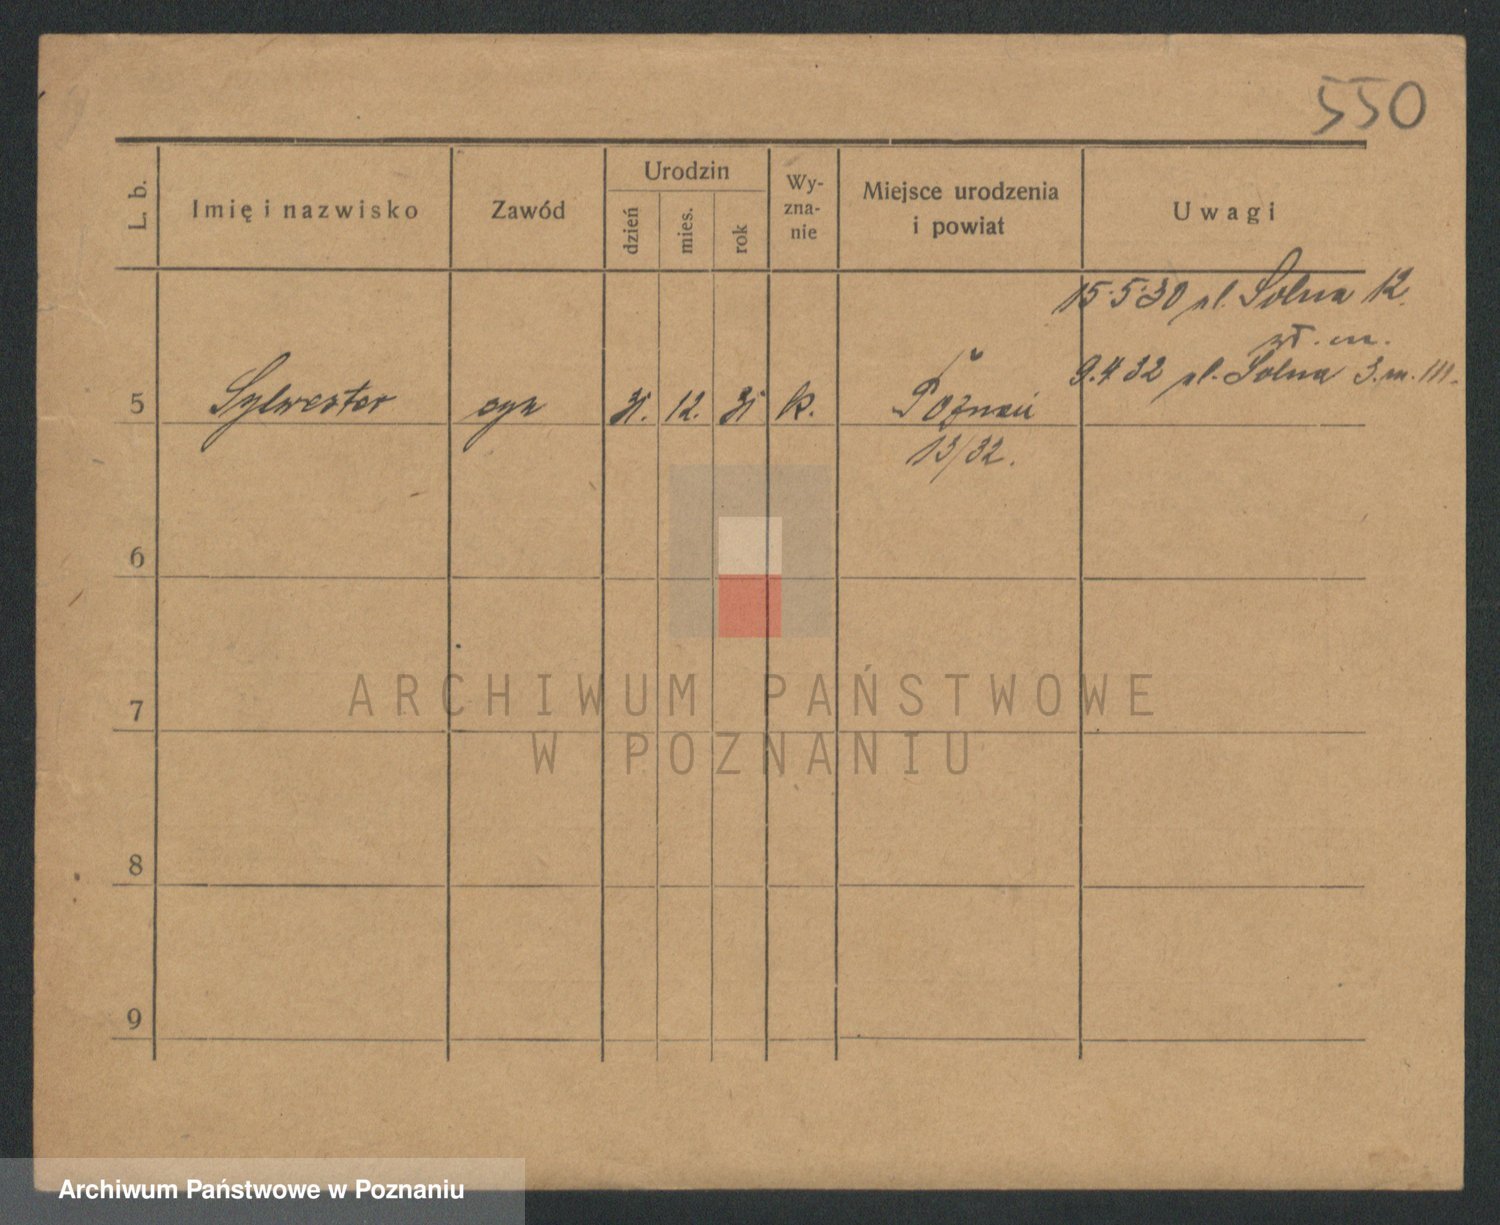 550
L. b.
Imię i nazwisko
Zawód
Urodzin
dzień
mies.
rok
Wy-
zna-
nie
Miejsce urodzenia
i powiat
Uwagi
15.5.30 pl. Solna 12.
9.4.32 pl. Solna 3. m. III.
5 Sylwester syn 31. 12. 31 k. Poznań
13/32.
6
7
8
9
ARCHIWUM PAŃSTWOWE
W POZNANIU
Archiwum Państwowe w Poznaniu